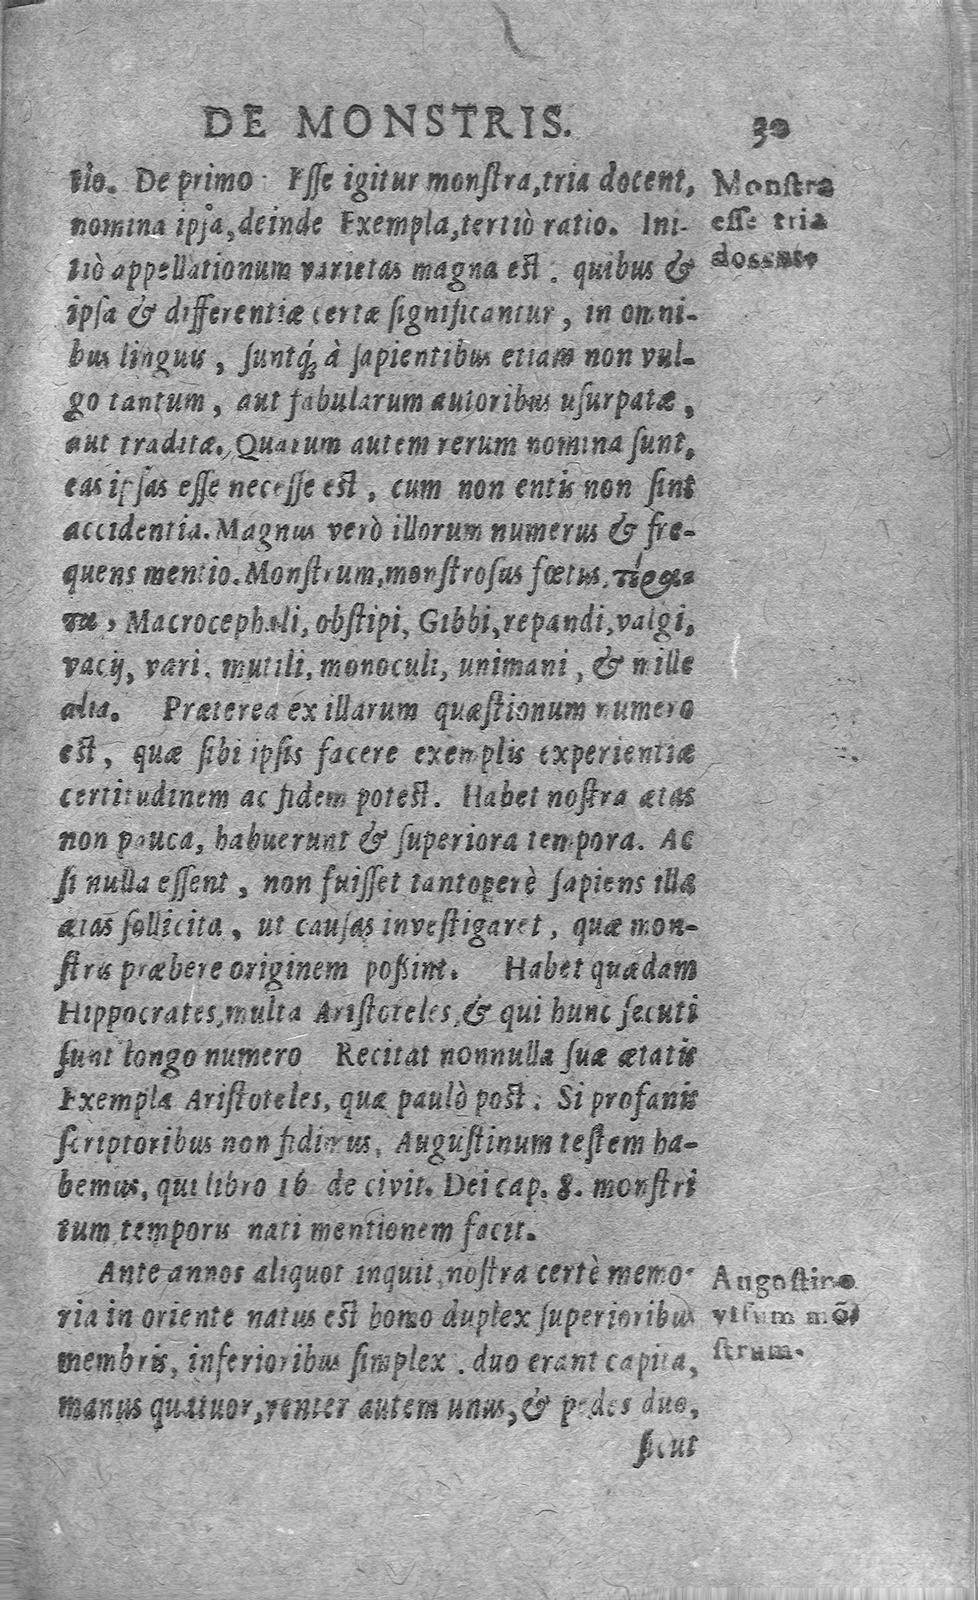 DE MONSTRIS. 30
tio. De primo Esse igitur monstra, tria docent,
nomina ipsa, deinde Exempla, tertiò ratio. Ini-
tiò appellationum varietas magna est: quibus &
ipsa & differentiæ certæ significantur, in omni-
bus linguis, suntq́; à sapientibus etiam non vul-
go tantum, aut fabularum autoribus usurpatæ,
aut traditæ. Quarum autem rerum nomina sunt,
eas ipsas esse necesse est, cum non entis non sint
accidentia. Magnus verò illorum numerus & fre-
quens mentio. Monstrum, monstrosus fœtus, τέρα-
τα, Macrocephali, obstipi, Gibbi, repandi, valgi,
vacij, vari, mutili, monoculi, unimani, & mille
alia. Præterea ex illarum quæstionum numero
est, quæ sibi ipsis facere exemplis experientiæ
certitudinem ac fidem potest. Habet nostra ætas
non pauca, habuerunt & superiora tempora. Ac
si nulla essent, non fuisset tantoperè sapiens illa
ætas sollicita, ut causas investigaret, quæ mon-
stris præbere originem possint. Habet quædam
Hippocrates, multa Aristoteles, & qui hunc secuti
sunt longo numero Recitat nonnulla suæ ætatis
Exempla Aristoteles, quæ paulò post. Si profanis
scriptoribus non fidimus, Augustinum testem ha-
bemus, qui libro 16 de civit. Dei cap. 8. monstri
tum temporis nati mentionem facit.
Ante annos aliquot inquit, nostra certè memo-
ria in oriente natus est homo duplex superioribus
membris, inferioribus simplex. duo erant capita,
manus quatuor, venter autem unus, & pedes duo,
sicut
Monstra
esse tria
Augostino
visum mõ
strum.